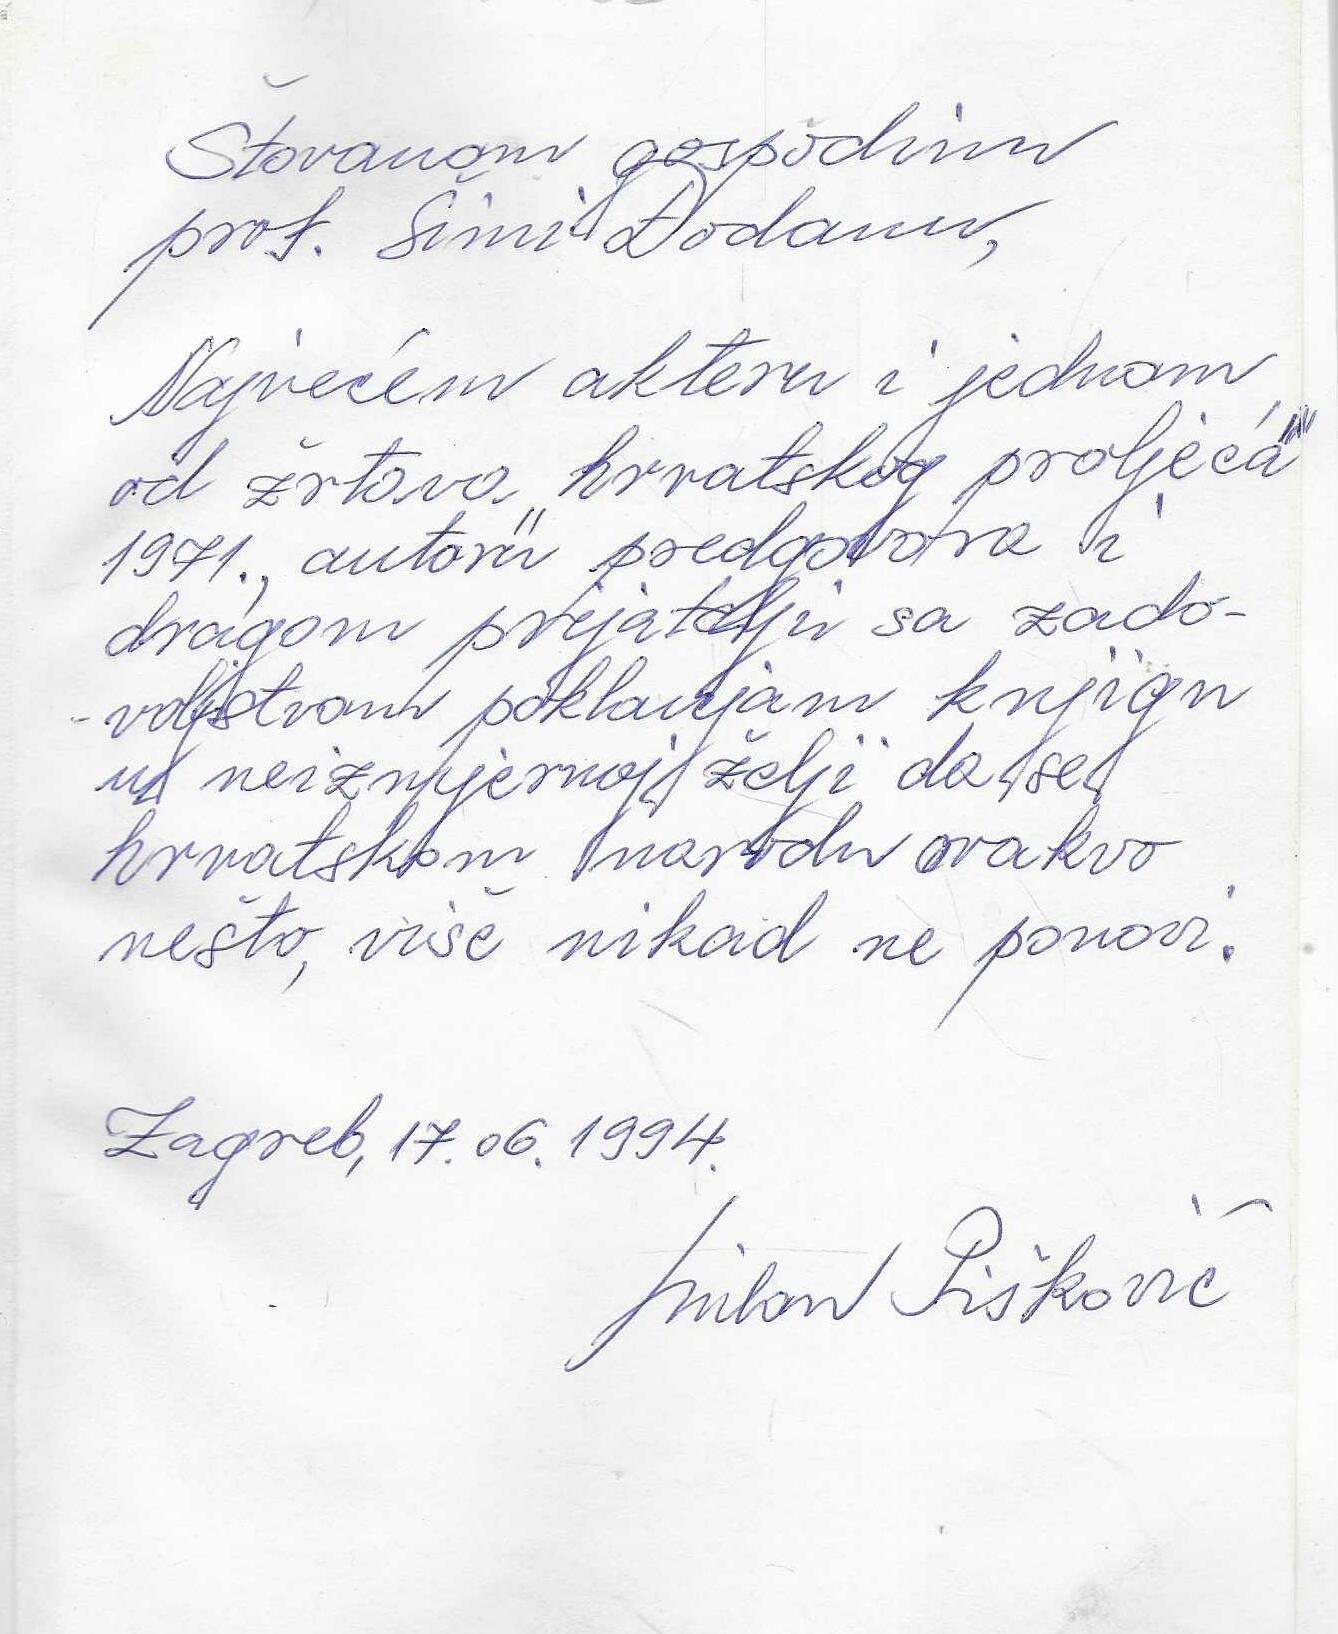 Štovanom gospodinu
prof. Šimi Đodanu,
Najvećem akteru i jednom
od žrtava „hrvatskog proljeća"
1971., autoru predgovora i
dragom prijatelju sa zado-
-voljstvom poklanjam knjigu
u neizmjernoj želji da se
hrvatskom narodu ovakvo
nešto, više nikad ne ponovi.
Zagreb, 17.06.1994.
Milan Pišković